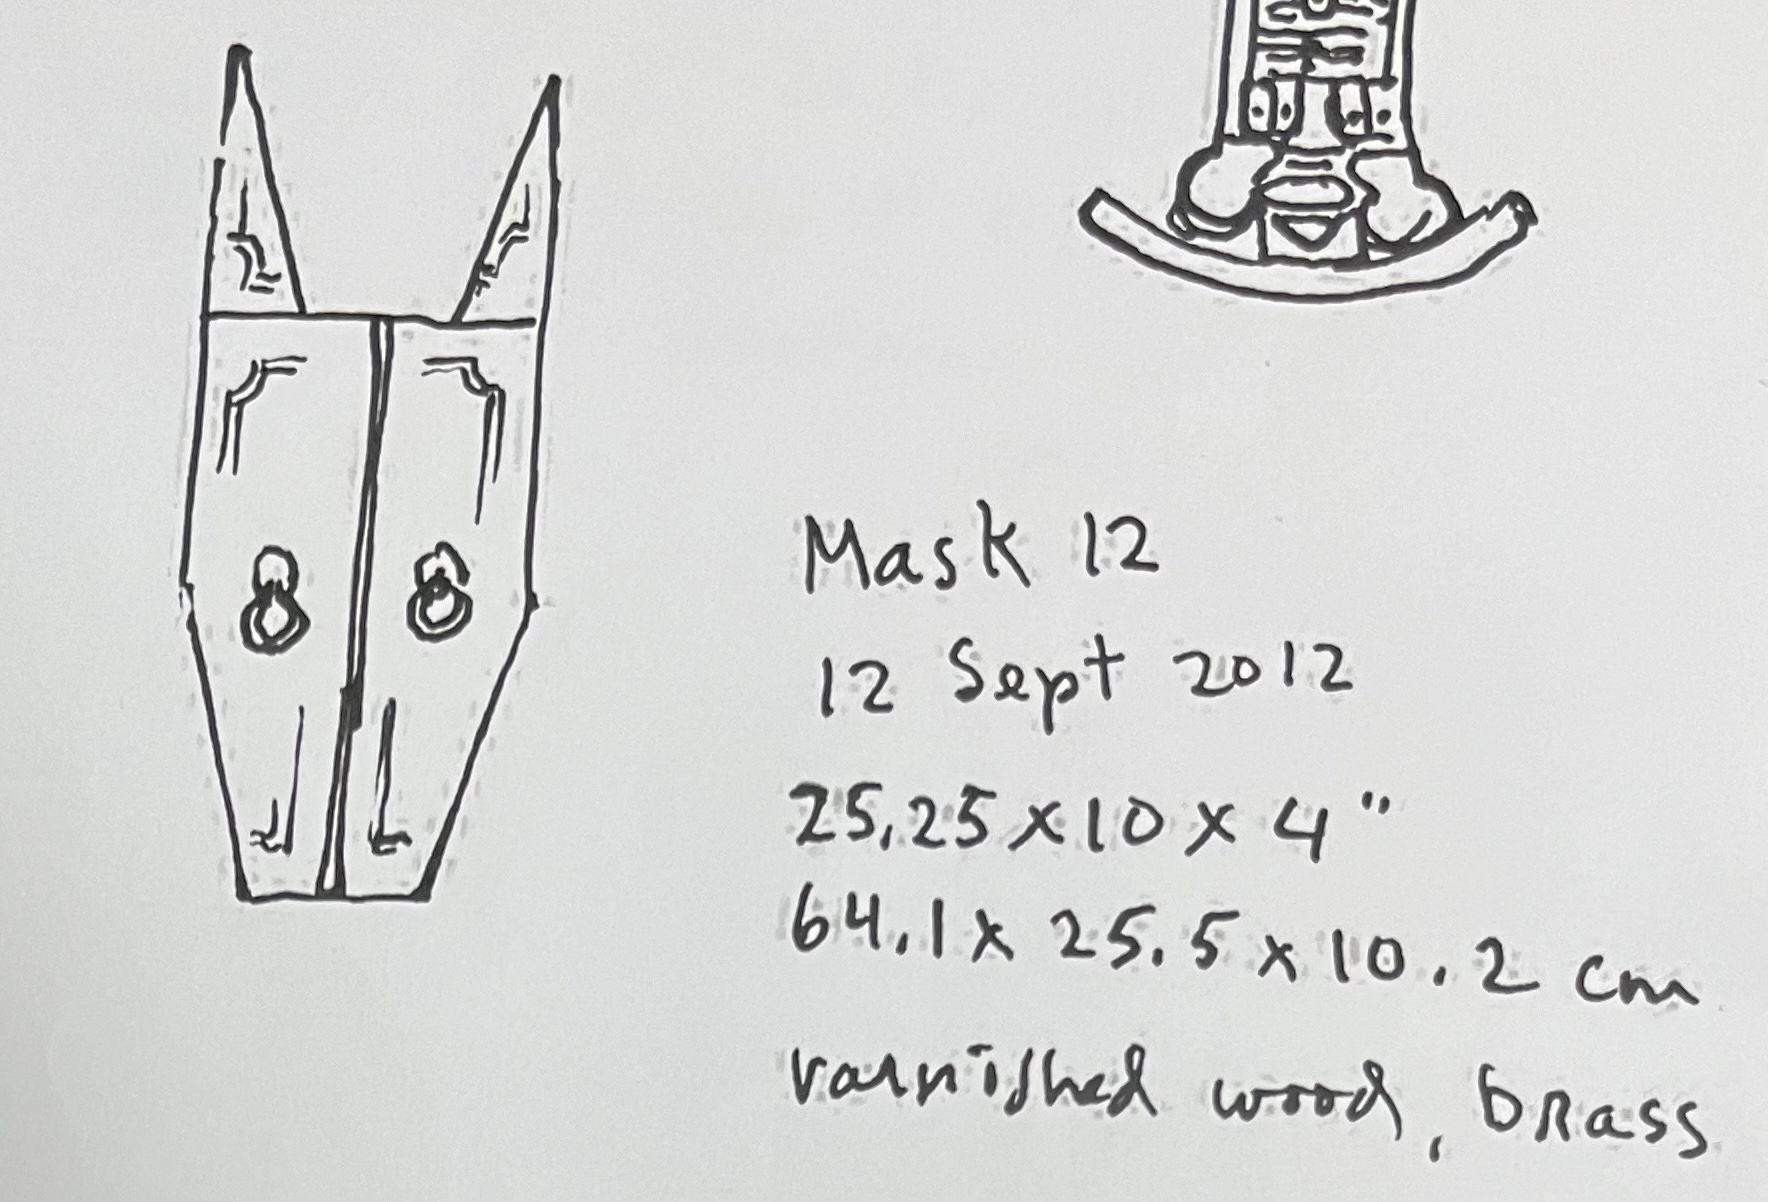 Mask 12
12 Sept 2012
25.25 x 10 x 4"
64.1 x 25.5 x 10.2 cm
varnished wood, brass